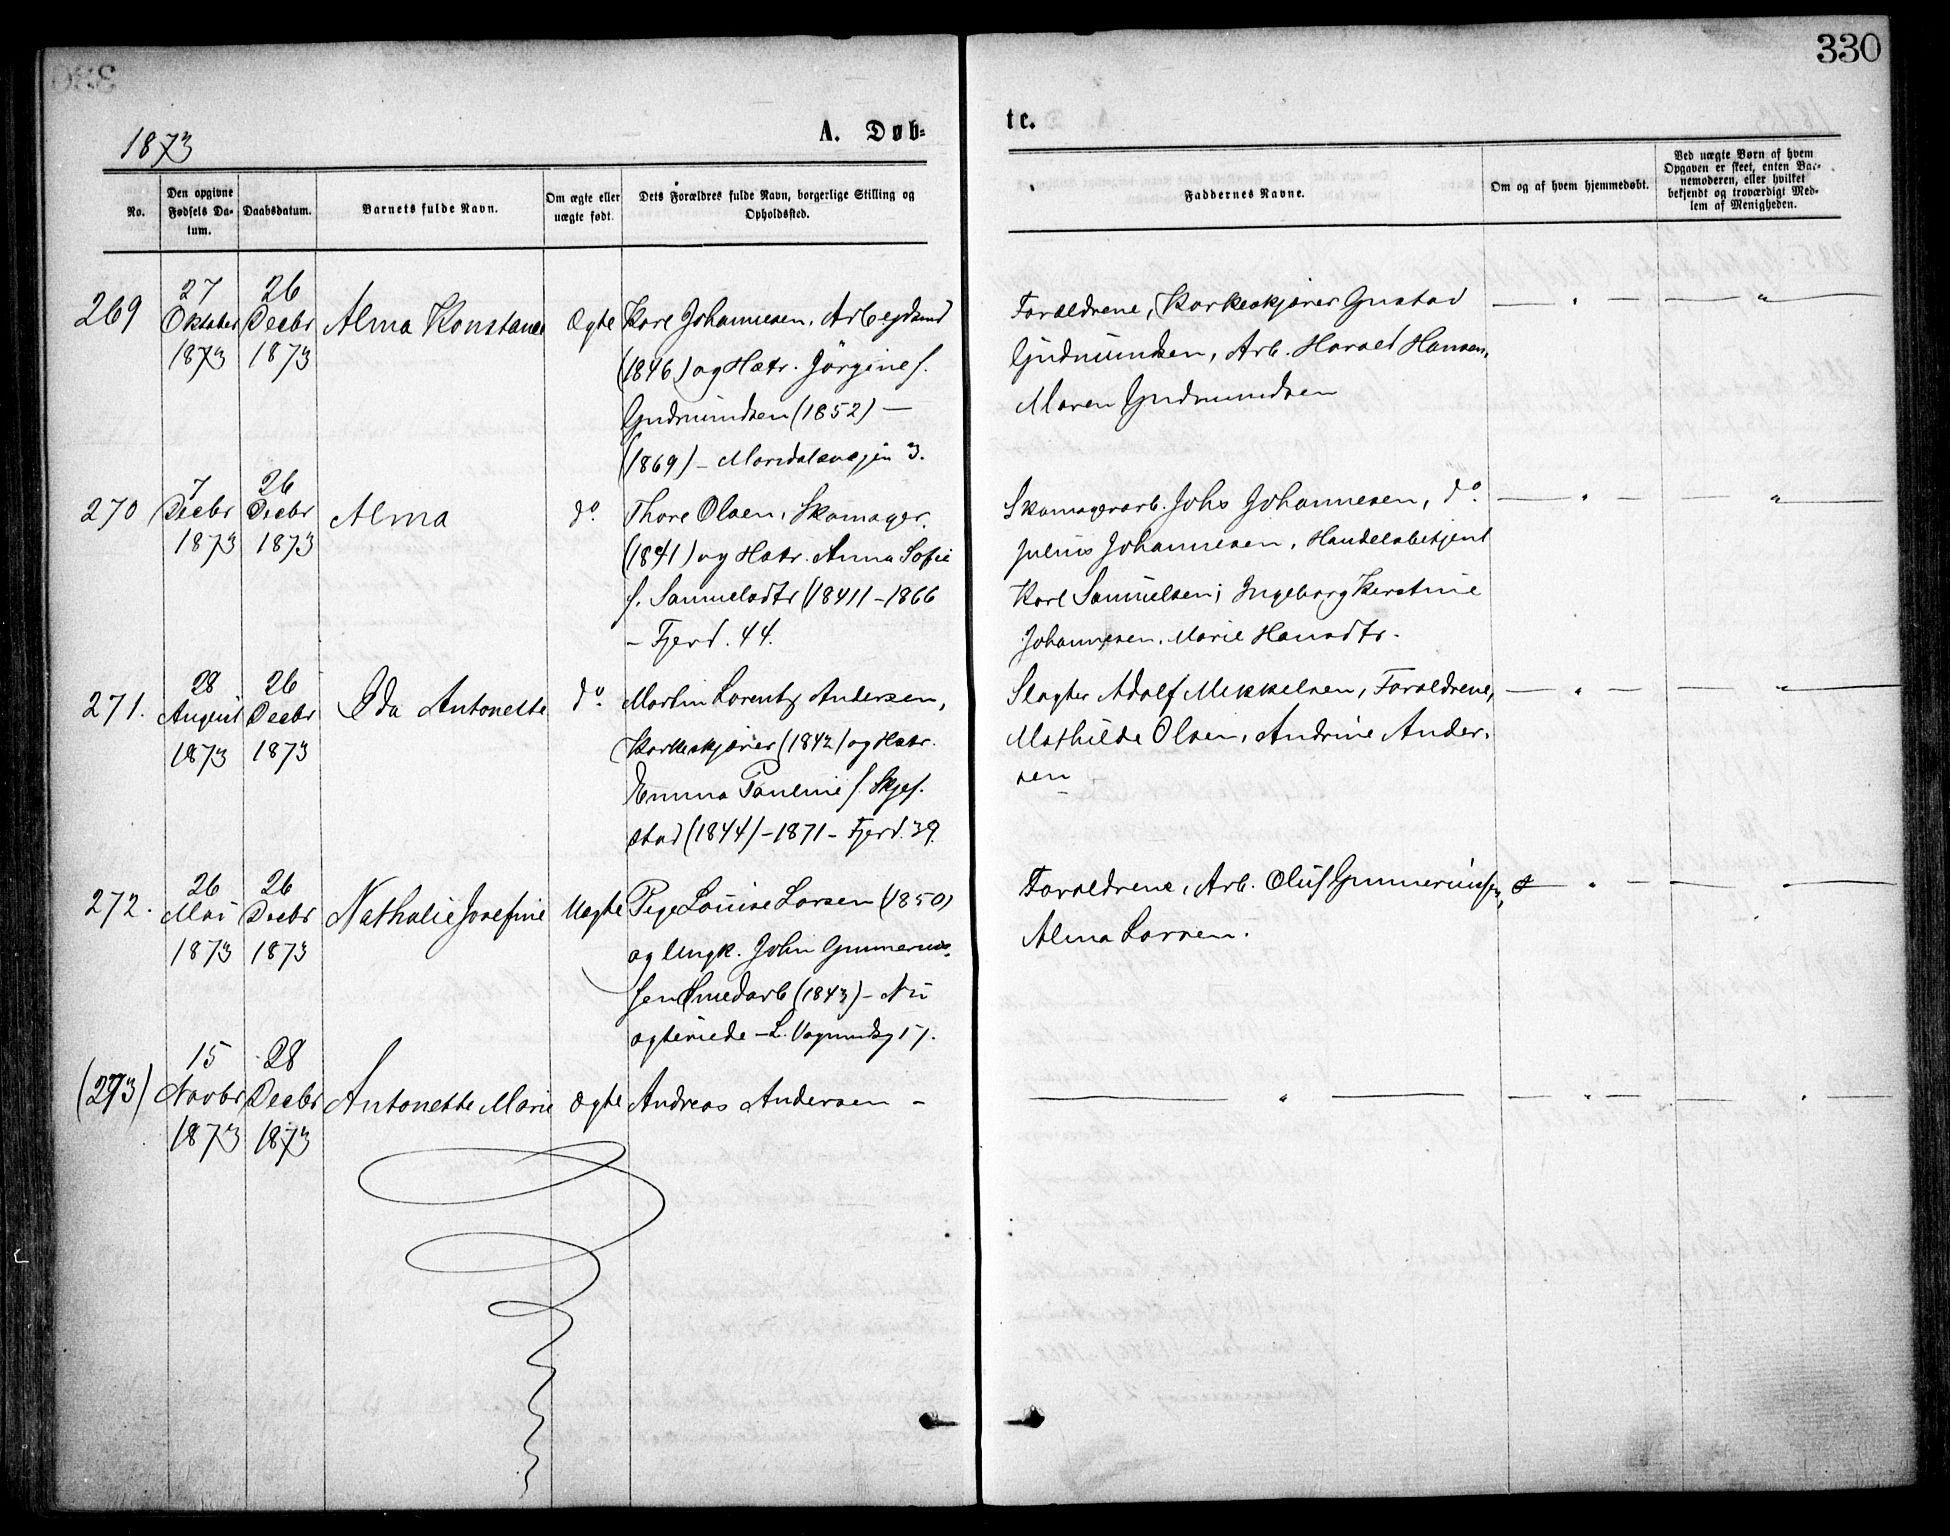 330
1873
A. Døb-
te.
No.
Den opgivne Fødsels Da-
tum.
Daabsdatum.
Barnets fulde Navn.
Om ægte eller
uægte født.
Dets Forældres fulde Navn, borgerlige Stilling og
Opholdssted.
Faddernes Navne.
Om og af hvem hjemmedøbt.
Ved uægte Børn af hvem
Opgaven er skeet, enten Bar-
nemoderen, eller hvilket
bekjendt og troværdigt Med-
lem af Menigheden.
269
27
Oktober
1873
26
Decbr
1873
Alma Konstance
Ægte
Karl Johannesen, Arbejdsmd
(1846) og Hstr. Jörgine f.
Gudmundsen (1852) —
(1869) – Maridalsvejen 3.
Forældrene, Korkeskjærer Gustav
Gudmundsen, Arb. Harald Hansen,
Maren Gudmundsen
270
7
Decbr
1873
26
Decbr
1873
Alma
do.
Thore Olsen, Skomager.
(1841) og Hstr. Anna Sofie
f. Samuelsdtr (1841) – 1866
– Fjerd. 44.
Skomagerarb. Johs Johannesen, do.
Julius Johannesen, Handelsbetjent
Karl Samuelsen; Ingeborg Kerstine
Johannesen, Marie Hansdtr.
271.
28
August
1873
26
Decbr
1873
Ida Antonette
do.
Martin Lorentz Andersen,
Korkeskjærer (1842) og Hstr.
Emma Pauline f. Skjef-
stad (1844) – 1871 – Fjerd. 39.
Slagter Adolf Mikkelsen, Forældrene,
Mathilde Olsen, Andrine Ander-
sen
272.
26
Mai
1873
26
Decbr
1873
Nathalie Josefine
Uægte
Pige Louise Larsen (1850)
og Ungk. John Gunnerius-
sen Smedarb (1843) – Nu
ægteviede – L. Vognmdsg 17.
Forældrene, Arb. Oluf Gunneriussen,
Alma Larsen.
(273)
15
Novbr
1873
28
Decbr
1873
Antonette Marie
Ægte
Andreas Andersen –